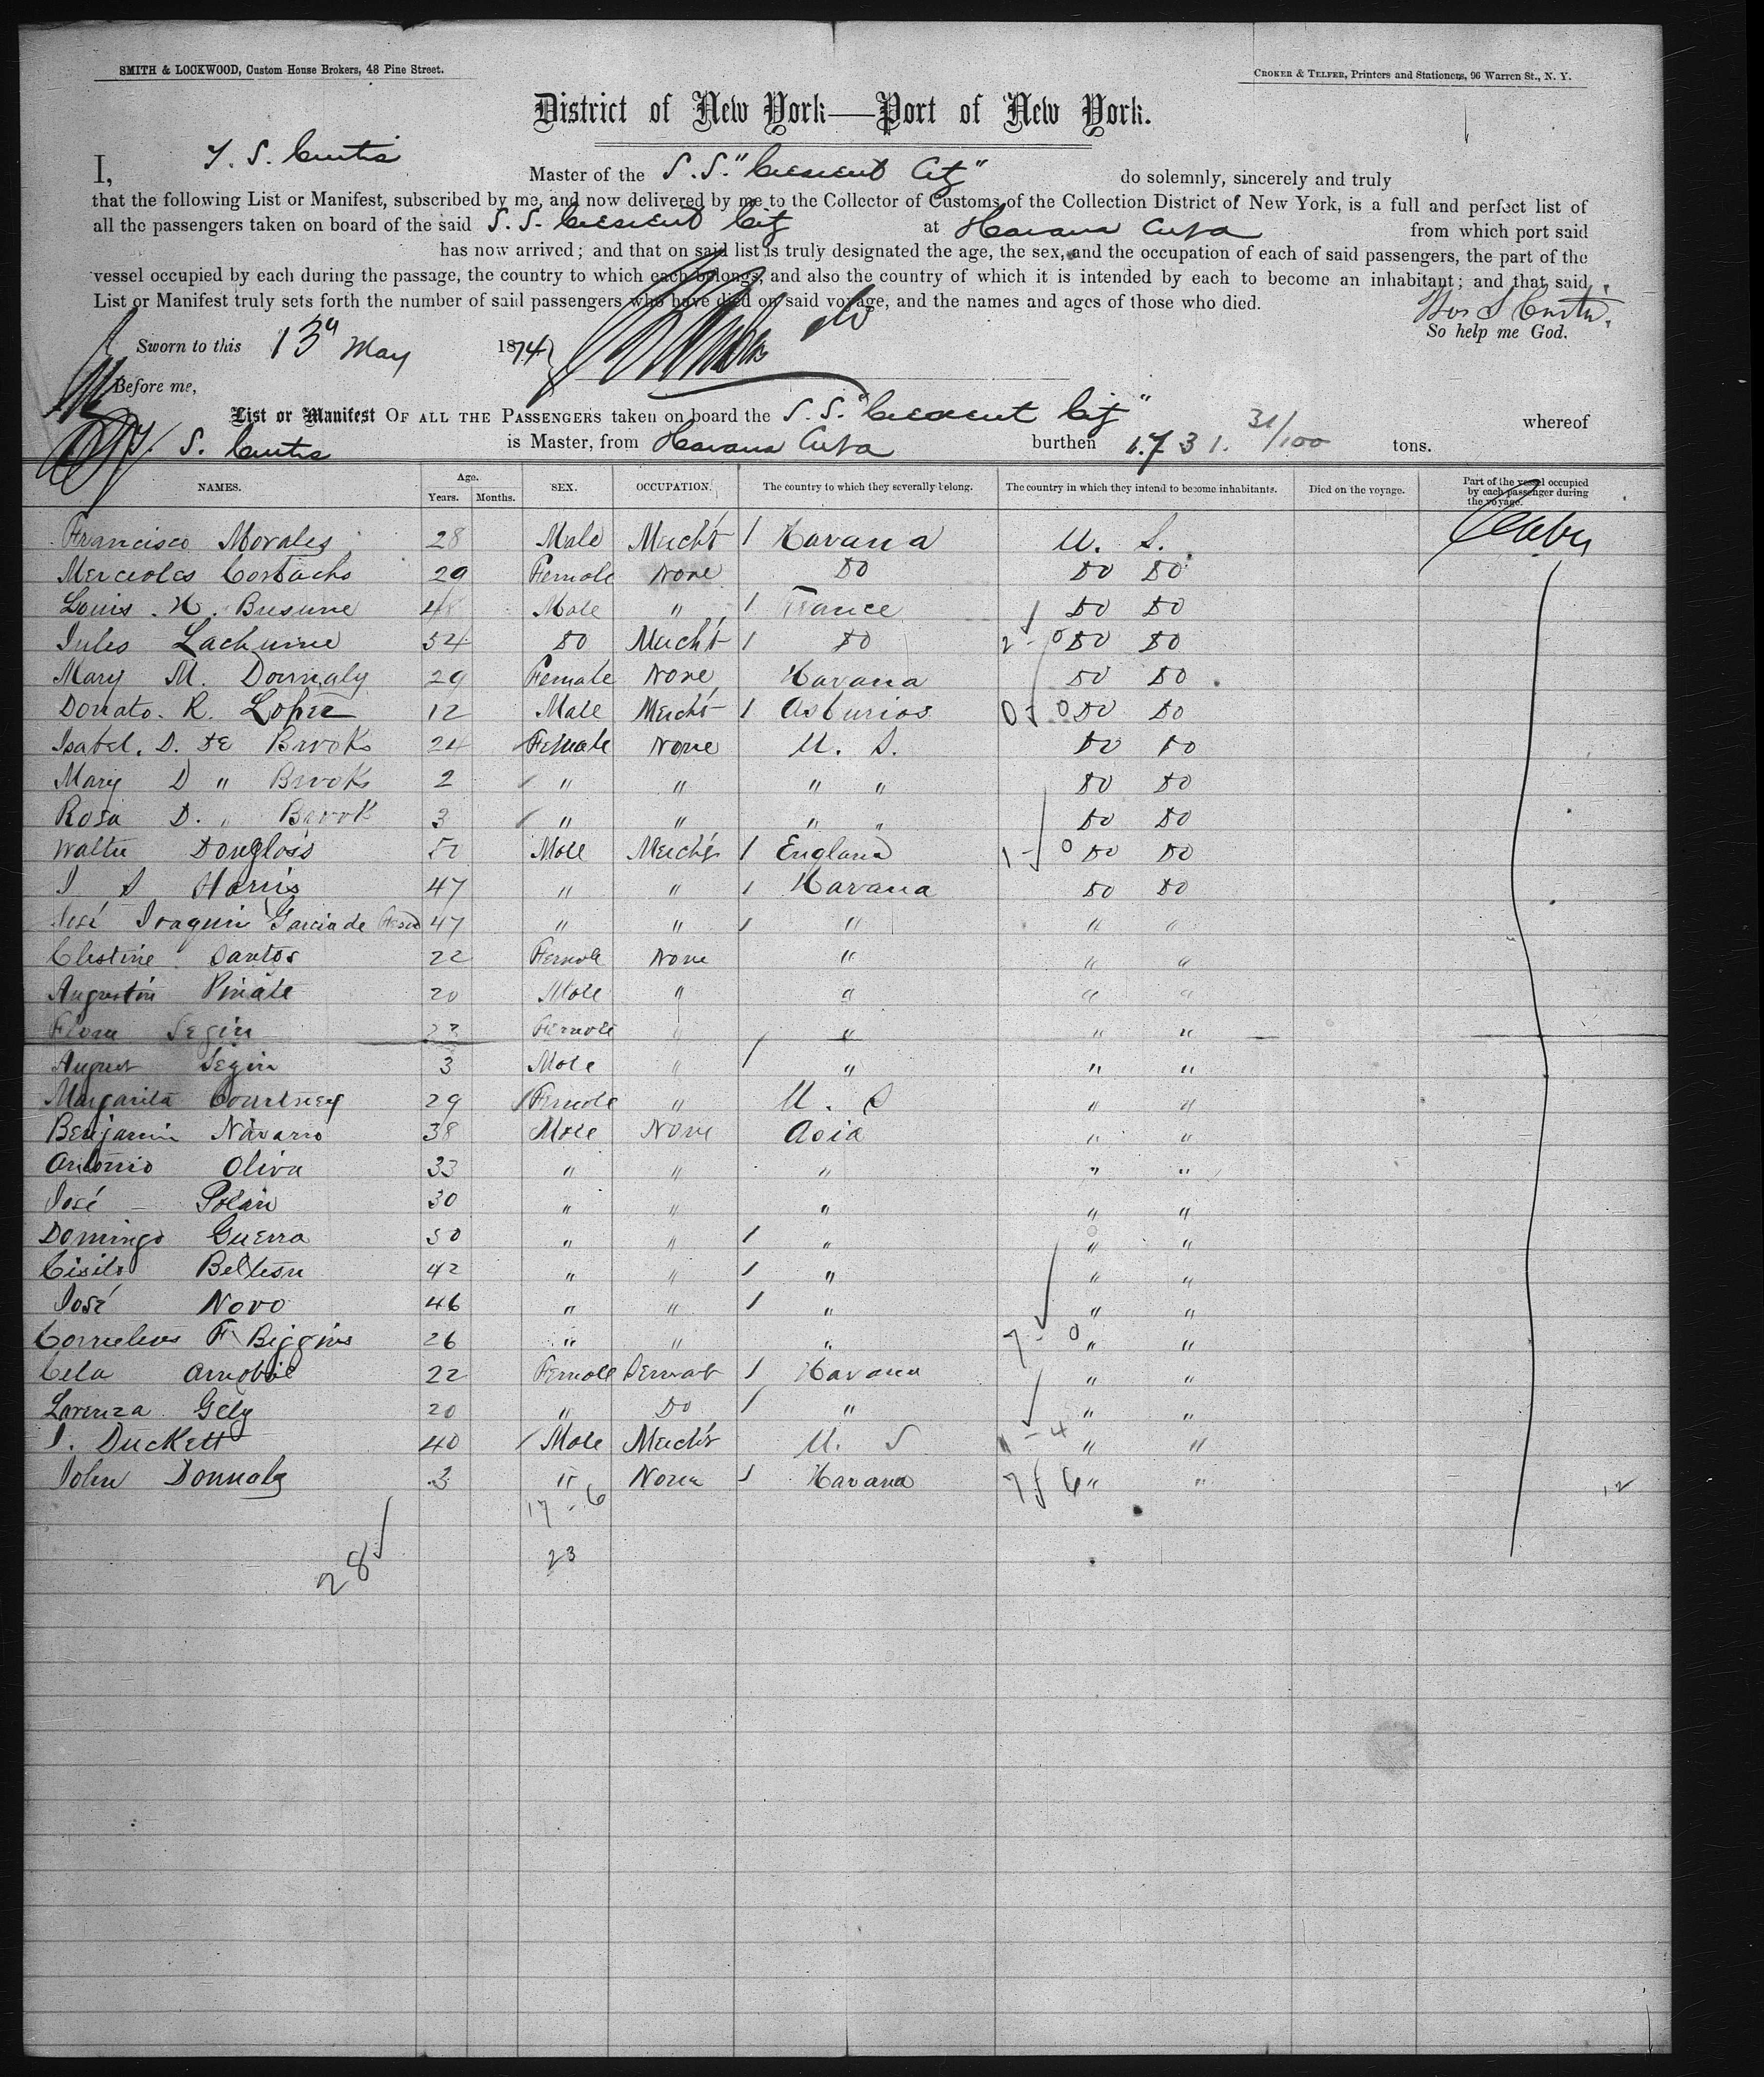 SMITH & LOCKWOOD, Custom House Brokers, 48 Pine Street.
CROKER & TELFER, Printers and Stationers, 96 Warren St., N. Y.
District of New York—Port of New York.
I, T. S. Curtis Master of the S. S. "Crescent City" do solemnly, sincerely and truly
that the following List or Manifest, subscribed by me, and now delivered by me to the Collector of Customs of the Collection District of New York, is a full and perfect list of
all the passengers taken on board of the said S. S. Crescent City at Havana Cuba from which port said
has now arrived; and that on said list is truly designated the age, the sex, and the occupation of each of said passengers, the part of the
vessel occupied by each during the passage, the country to which each belongs, and also the country of which it is intended by each to become an inhabitant; and that said
List or Manifest truly sets forth the number of said passengers who have died on said voyage, and the names and ages of those who died.
Curtis
So help me God.
Sworn to this 13 May 1874
Before me,
List or Manifest OF ALL THE PASSENGERS taken on board the S. S. "Crescent City" whereof
T. S. Curtis is Master, from Havana Cuba burthen 1.731. 31/100 tons.
NAMES. Age. Years. Months. SEX. OCCUPATION. The country to which they severally belong. The country in which they intend to become inhabitants. Died on the voyage. Part of the vessel occupied by each passenger during the voyage.
Francisco Morales 28 Male Mercht 1 Havana U. S.
Mercedes 29 Female None Do Do Do
Louis H. 48 Male " 1 France Do Do
Jules 54 Do Mercht 1 Do 2 - 0 Do Do
Mary M. Donnaly 29 Female None Havana Do Do
Donato. R. Lopez 12 Male Mercht 1 Asturias 0 - 0 Do Do
Isabel. D. DE Brooks 24 Female None U. S. Do Do
Mary D " Brooks 2 " " " " Do Do
Rosa D. " Brook 3 " " " " Do Do
Walter Douglass Male Mercht 1 England 1 - 0 Do Do
J S Harris 47 " " 1 Havana Do Do
José Joaquin Garcia de 47 " " 1 " " "
Clestine Santos 22 Female None " " "
Augustin 20 Male " " " "
Segin Female " " " "
August Segin 3 Male " 1 " " "
Margarita Courtney 29 Female " U. S " "
Benjamin Navarro 38 Male None Asia " "
Antonio Oliva 33 " " " " "
José - Polan 30 " " " " "
Domingo Guerra 50 " " 1 " " "
42 " " 1 " " "
José Novo 46 " " 1 " " "
Cornelius F. Biggins 26 " " " 7 - 0 " "
22 Female Servat 1 Havana " "
Lorenza Gely 20 " Do 1 " " "
J. Duckett 40 Male Mercht U. S - 4 " "
John Donnaly 3 " None 1 Havana 7 6 " "
17 - 6
28
23